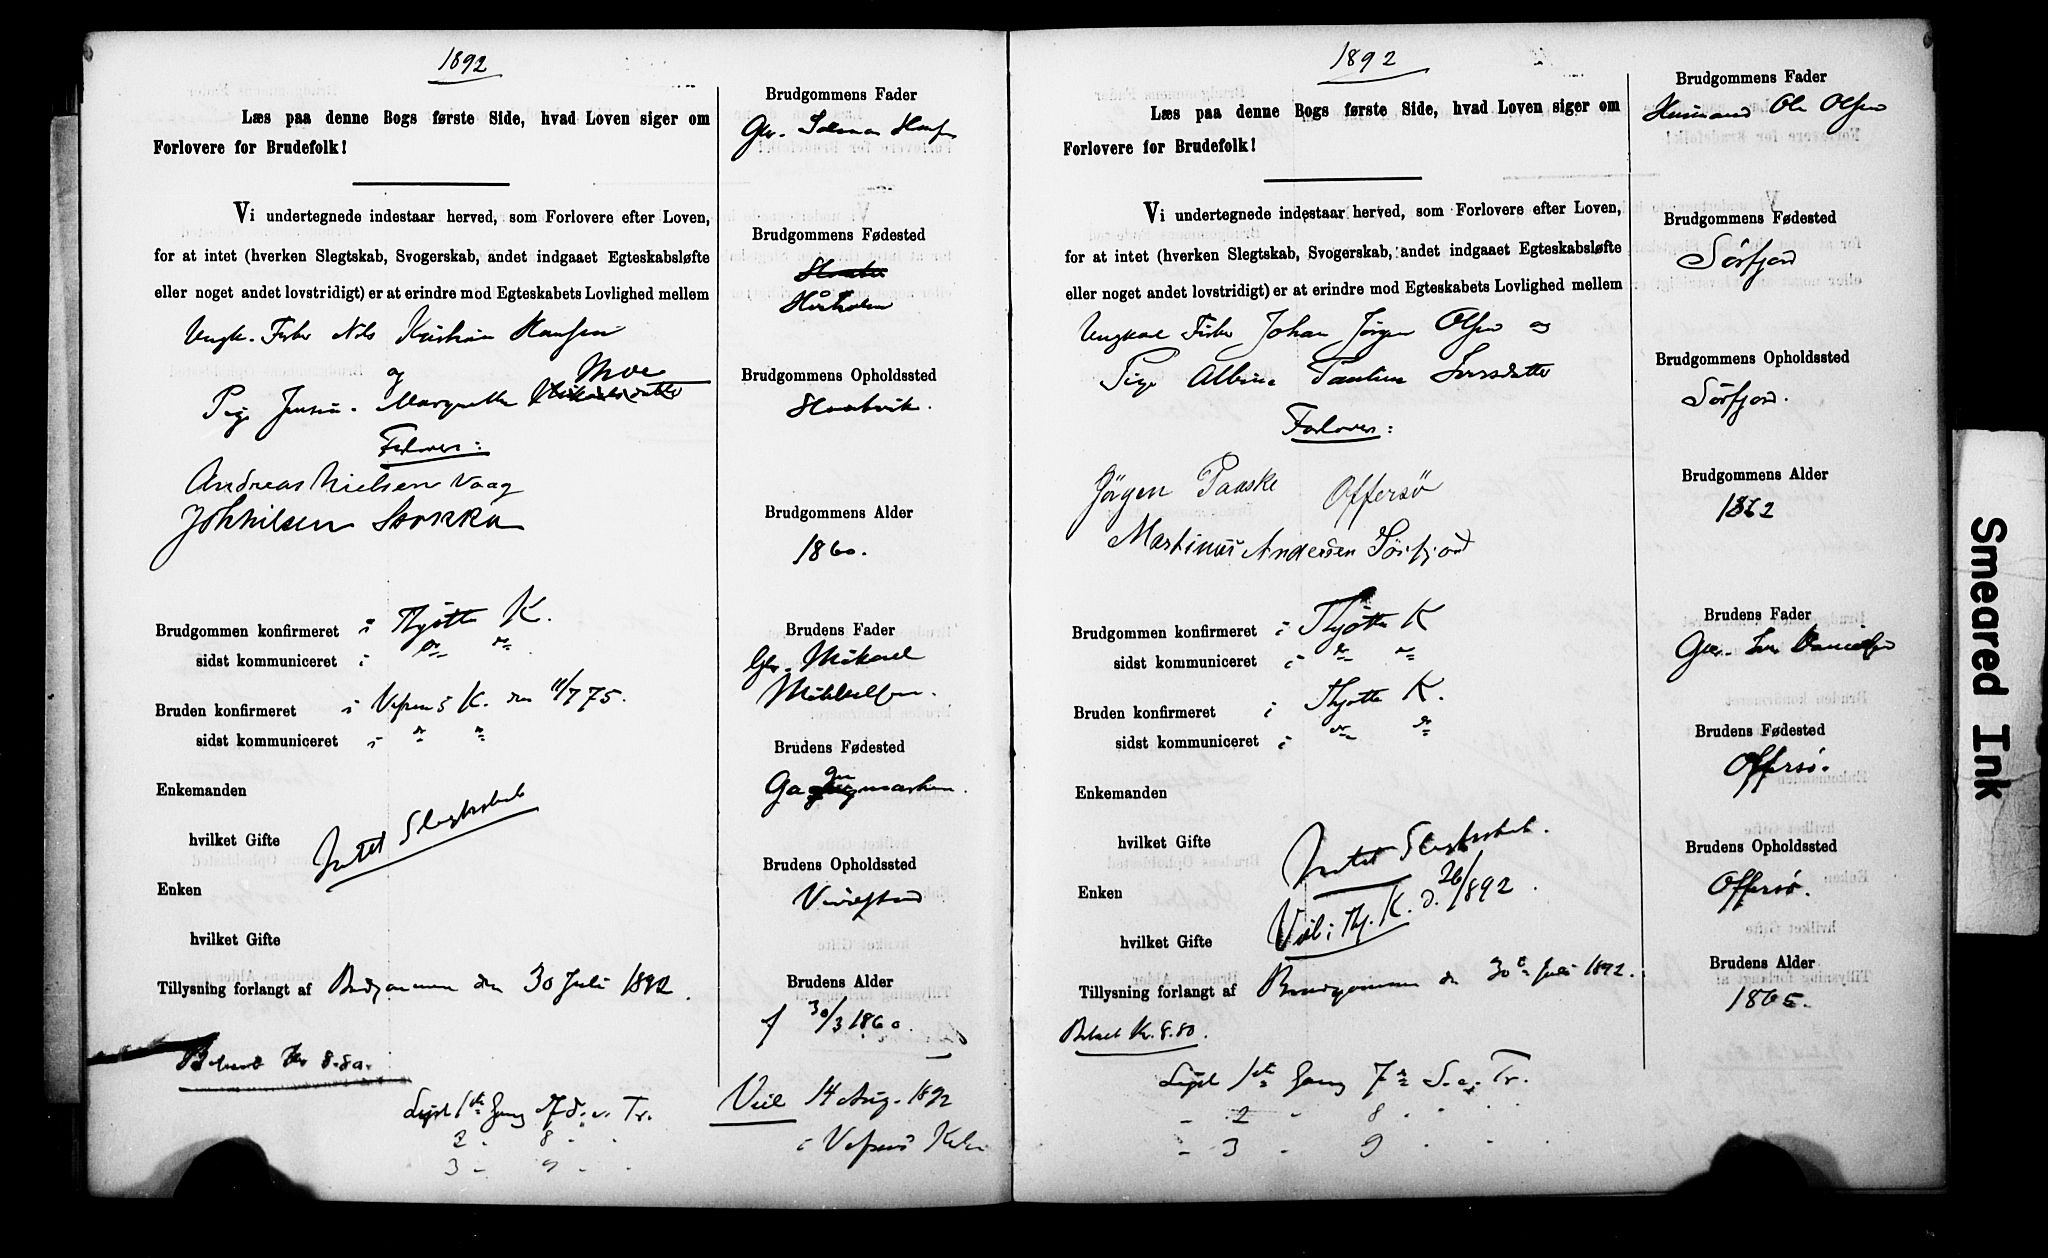 1892
Læs paa denne Bogs første Side, hvad Loven siger om
Forlovere for Brudefolk!
Vi undertegnede indestaar herved, som Forlovere efter Loven,
for at intet (hverken Slegtskab, Svogerskab, andet indgaaet Egteskabsløfte
eller noget andet lovstridigt) er at erindre mod Egteskabets Lovlighed mellem
Ungk. Fisker Nils Kristian Hansen
og Moe
Pige Margrethe
Forlovere:
Andreas Nielsen Vaag
Joh Nilsen
Brudgommen konfirmeret i Thjøtta K.
sidst kommuniceret i do do
Bruden konfirmeret i Vefsens K. den 11/7 75.
sidst kommuniceret i do do
Enkemanden
hvilket Gifte
Intet Slegtskab
Enken
hvilket Gifte
Tillysning forlangt af Brudgommen den 30 Juli 1892.
Betalt Kr 8.80.
Lyst 1ste Gang 7 S. e. Tr.
2 - 8 - -
3 - 9 - -
Brudgommens Fader
Gbr.
Brudgommens Fødested
Brudgommens Opholdssted
Brudgommens Alder
1860.
Brudens Fader
Gbr. Mikael
Mikkelsen.
Brudens Fødested
Brudens Opholdssted
Brudens Alder
f 30/3 1860.
Viet 14 Aug. 1892
i Vefsens Kirke
1892
Læs paa denne Bogs første Side, hvad Loven siger om
Forlovere for Brudefolk!
Vi undertegnede indestaar herved, som Forlovere efter Loven,
for at intet (hverken Slegtskab, Svogerskab, andet indgaaet Egteskabsløfte
eller noget andet lovstridigt) er at erindre mod Egteskabets Lovlighed mellem
Ungkarl Fisker Johan Jørgen Olsen og
Pige Albine Pauline Iversdatter
Forlovere:
Jörgen Paaske Offersö
Martinus Andersen Sörfjord
Brudgommen konfirmeret i Thjøtta K
sidst kommuniceret i do do
Bruden konfirmeret i Thjøtta K.
sidst kommuniceret i do do
Enkemanden
hvilket Gifte
Intet Slegtskab.
Enken
Viet i Thj. K. d. 26/ 892.
hvilket Gifte
Tillysning forlangt af Brudgommen den 30te Juli 1892.
Betalt Kr. 8.80.
Lyst 1ste Gang 7de S. e. Tr.
- 2 - 8 - -
- 3 - 9 - -
Brudgommens Fader
Husmand Ole Olsen
Brudgommens Fødested
Sörfjord
Brudgommens Opholdssted
Sörfjord.
Brudgommens Alder
1862
Brudens Fader
Gbr. Iver Danielsen
Brudens Fødested
Offersö.
Brudens Opholdssted
Offersö.
Brudens Alder
1865.
Smeared Ink